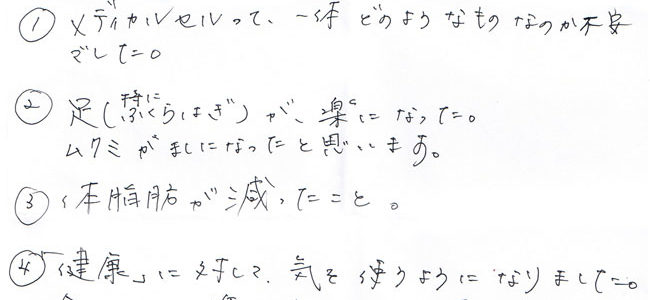 ① メディカルセルって、一体どのようなものなのか不安
でした。
② 足(特にふくらはぎ)が、楽になった。
ムクミがましになったと思います。
③ 体脂肪が減ったこと。
④「健康」に対して、気を使うようになりました。